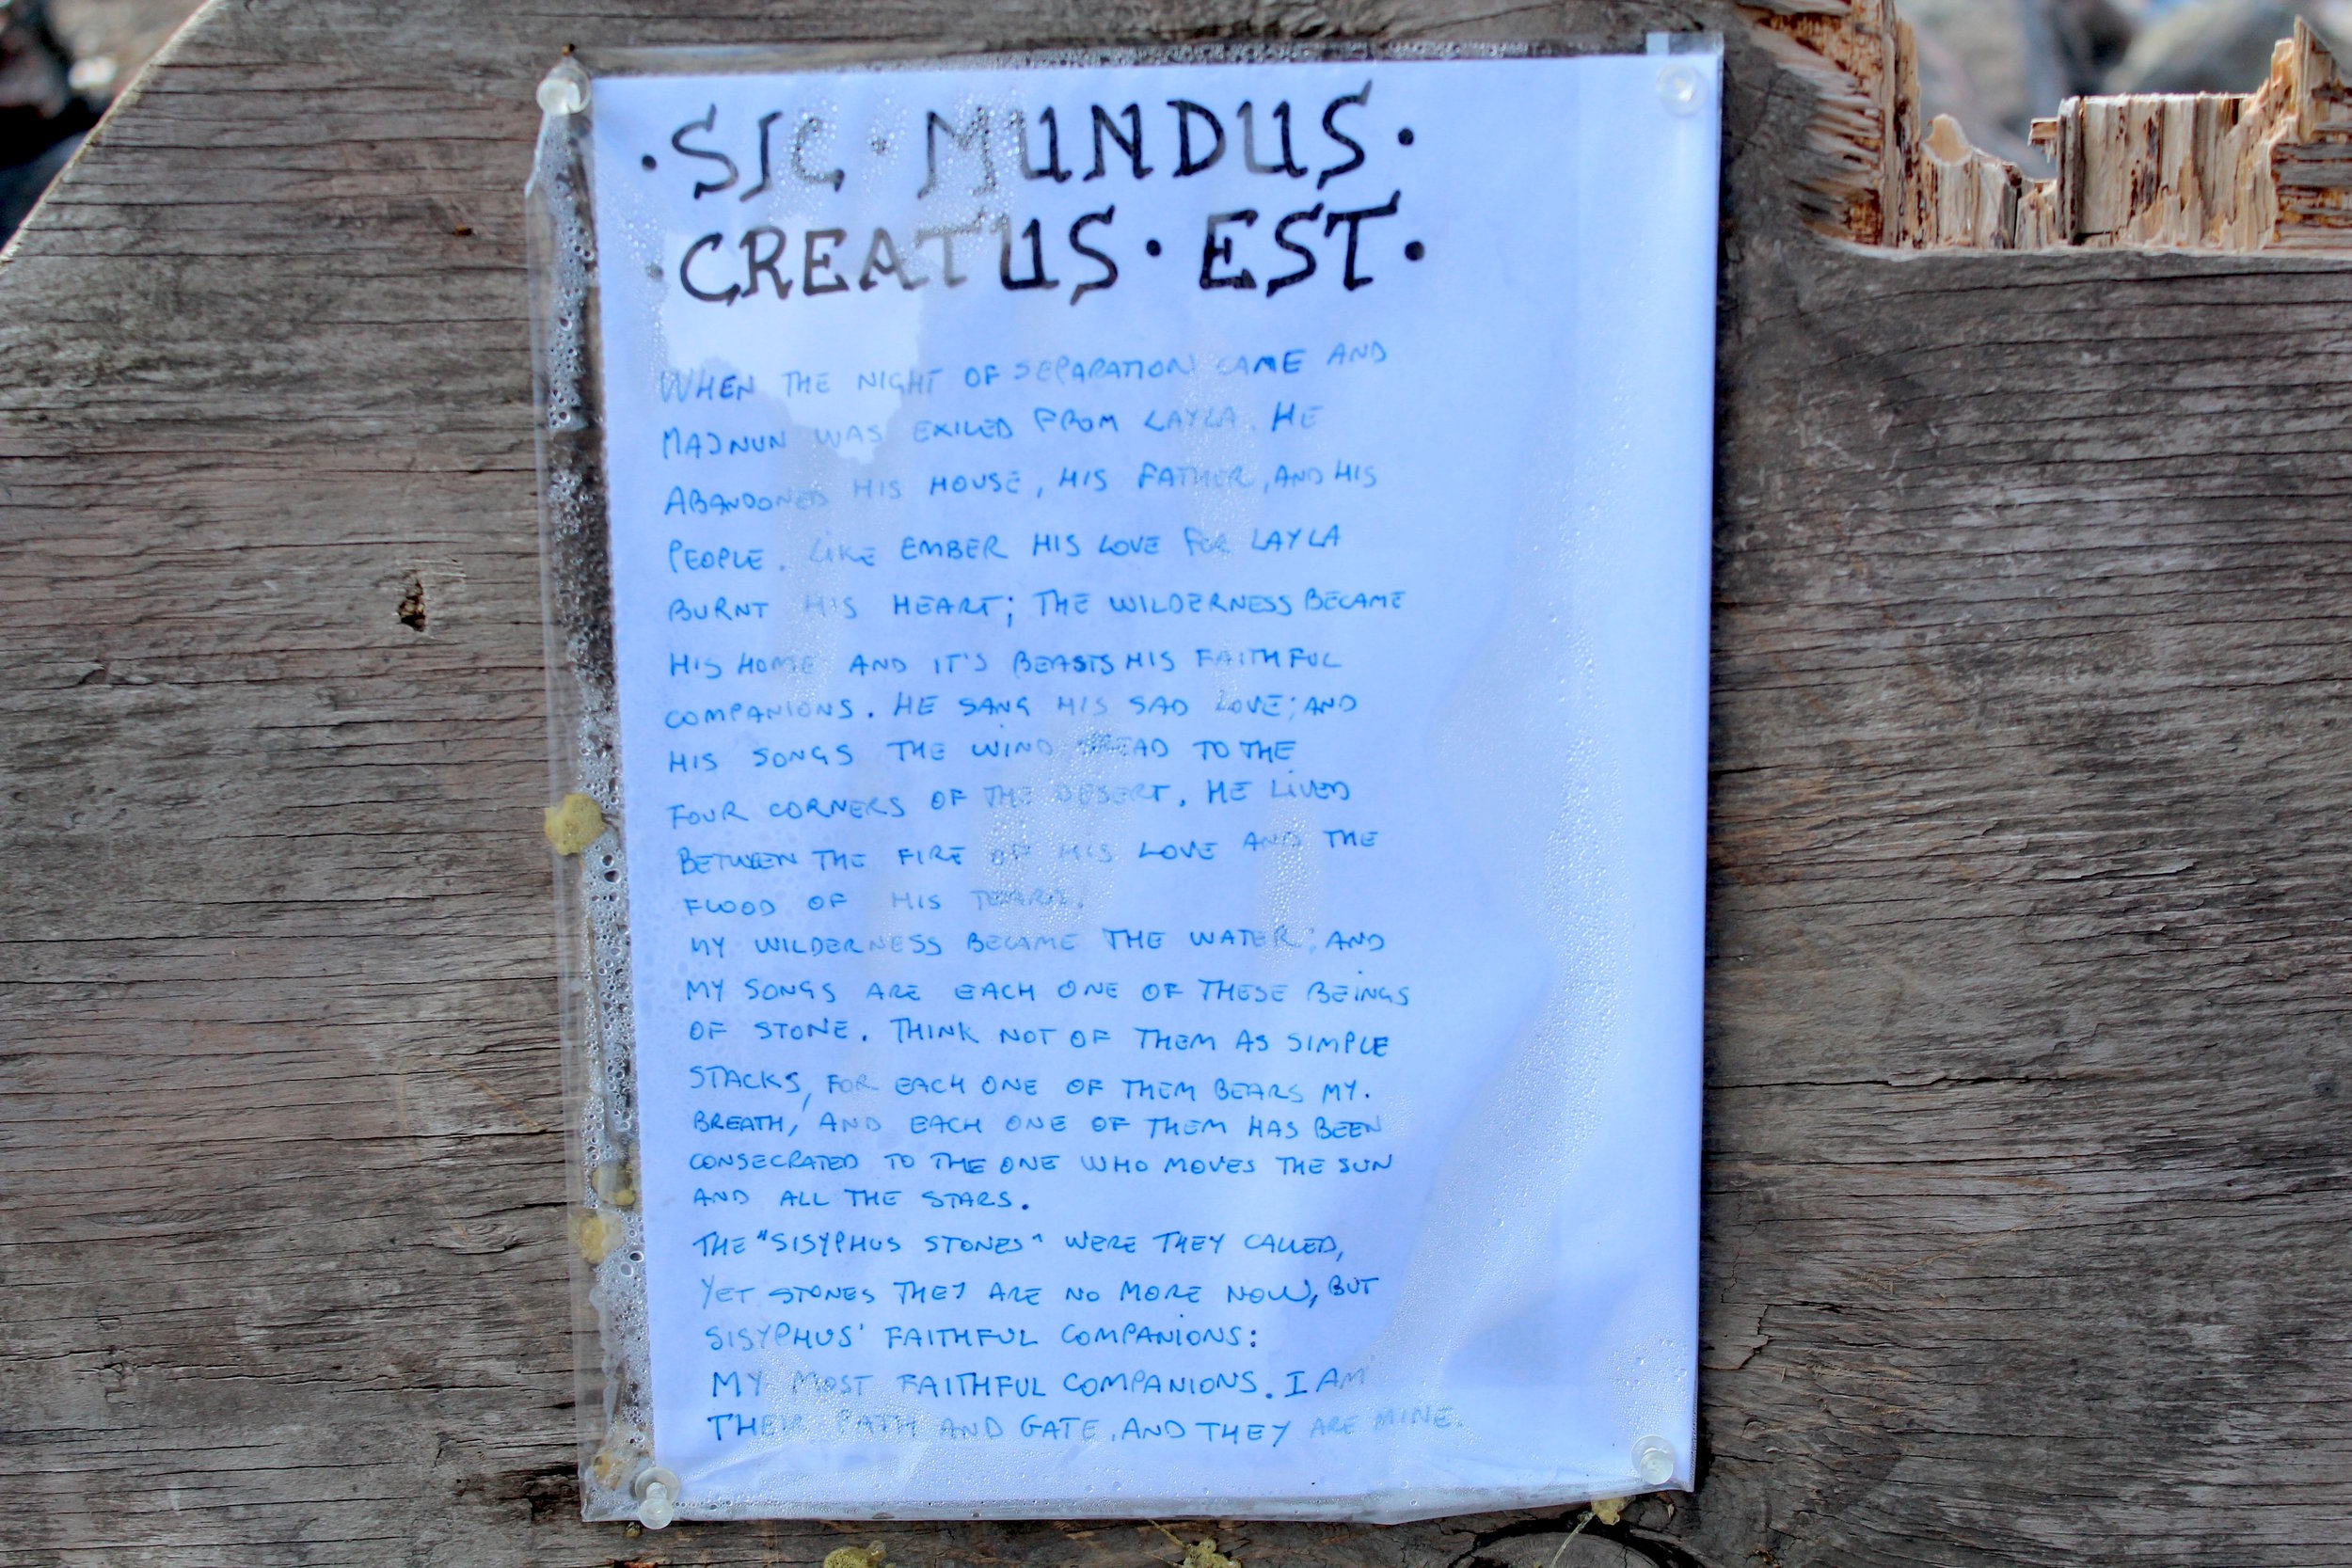 ·SIC·MUNDUS·
·CREATUS·EST·
WHEN THE NIGHT OF SEPARATION CAME AND
MAJNUN WAS EXILED FROM LAYLA. HE
ABANDONED HIS HOUSE, HIS FATHER, AND HIS
PEOPLE. LIKE EMBER HIS LOVE FOR LAYLA
BURNT HIS HEART; THE WILDERNESS BECAME
HIS HOME AND IT'S BEASTS HIS FAITHFUL
COMPANIONS. HE SANG HIS SAD LOVE; AND
HIS SONGS THE WIND SPREAD TO THE
FOUR CORNERS OF THE DESERT. HE LIVED
BETWEEN THE FIRE OF HIS LOVE AND THE
FLOOD OF HIS TEARS.
MY WILDERNESS BECAME THE WATER; AND
MY SONGS ARE EACH ONE OF THESE BEINGS
OF STONE. THINK NOT OF THEM AS SIMPLE
STACKS, FOR EACH ONE OF THEM BEARS MY.
BREATH, AND EACH ONE OF THEM HAS BEEN
CONSECRATED TO THE ONE WHO MOVES THE SUN
AND ALL THE STARS.
THE "SISYPHUS STONES" WERE THEY CALLED,
YET STONES THEY ARE NO MORE NOW, BUT
SISYPHUS' FAITHFUL COMPANIONS:
MY MOST FAITHFUL COMPANIONS. I AM
THEIR PATH AND GATE, AND THEY ARE MINE.